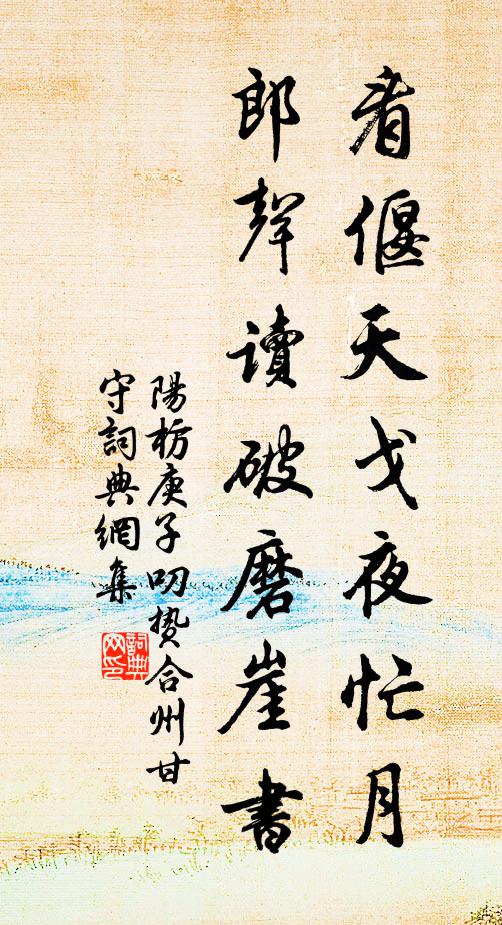 看偃天戈夜忙月
郎聲讀破磨崖書
陽枋庚子叨贄合州甘
守詞典網集
詞典
网印